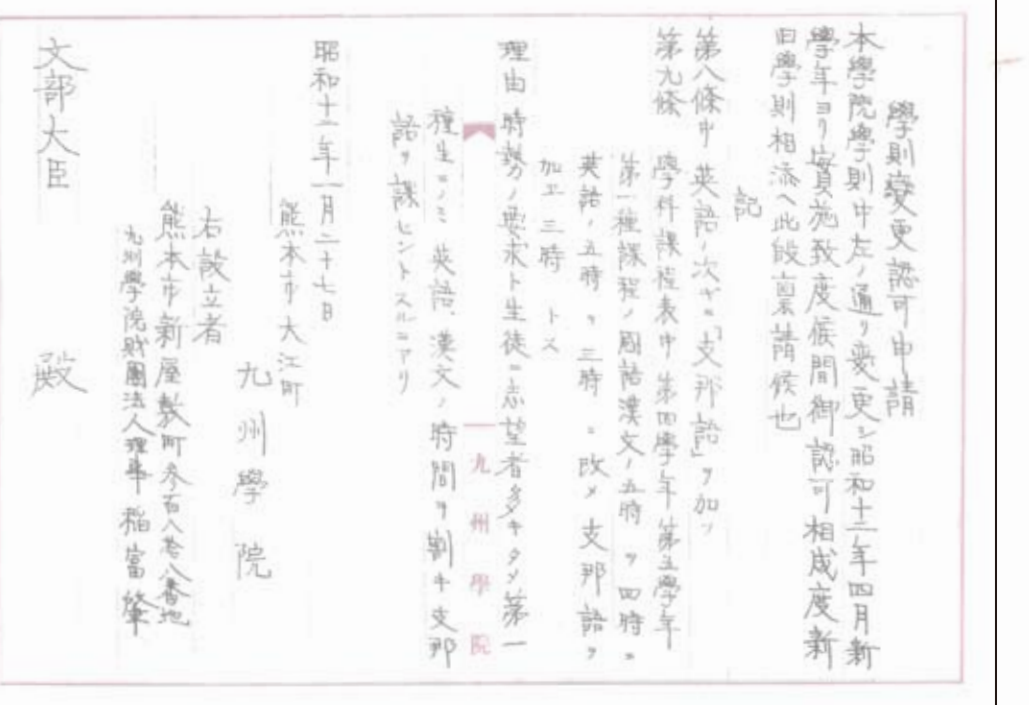 學則變更認可申請
本學院學則中左ノ通リ変更シ昭和十二年四月新
學年ヨリ實施致度候間御認可相成度新
旧學則相添ヘ此段禀請候也
記
第八條中 英語ノ次ギニ「支那語」ヲ加フ
第九條 學科課程表中 第四學年 第五學年
第一種課程ノ國語漢文ノ五時ヲ四時ニ
英語ノ五時ヲ三時ニ改メ支那語ヲ
加エ三時トス
理由 時勢ノ要求ト生徒ニ志望者多キタメ第一
九州學院
種生ニノミ英語、漢文ノ時間ヲ割キ支那
語ヲ課センントスルニアリ
昭和十二年一月二十七日
熊本市大江町
九州學院
右設立者
熊本市新屋敷町参百八拾八番地
九州學院財團法人理事 稲富肇
文部大臣 殿